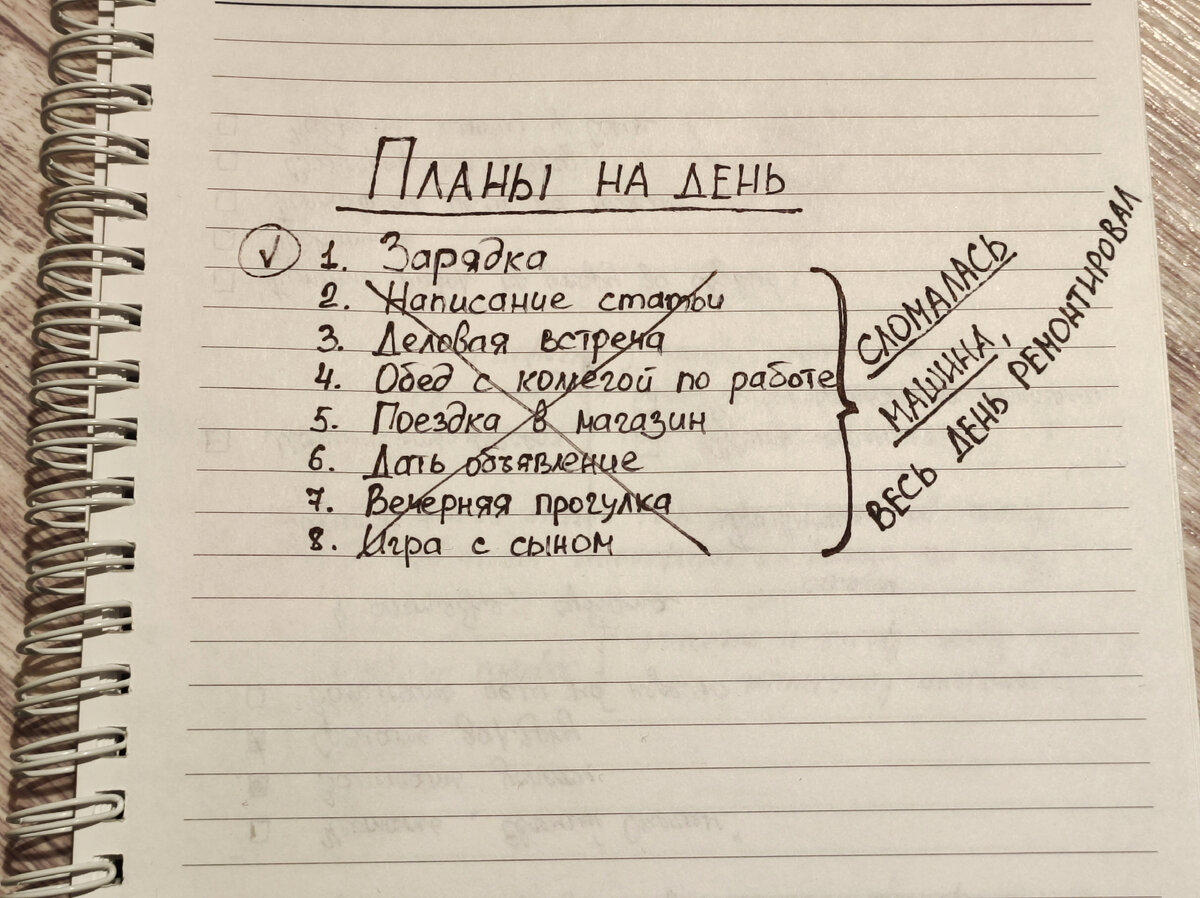 Планы на день
✓ 1. Зарядка
2. Написание статьи
3. Деловая встреча
4. Обед с коллегой по работе
5. Поездка в магазин
6. Дать объявление
7. Вечерняя прогулка
8. Игра с сыном
СЛОМАЛАСЬ
МАШИНА,
ВЕСЬ ДЕНЬ РЕМОНТИРОВАЛ